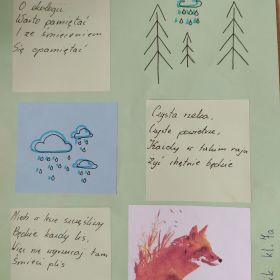 O ekologii
Warto pamiętać
I ze śmieceniem
Się opamiętać
Czysta rzeka,
Czyste powietrze,
Każdy w takim raju
Żyć chętnie będzie
Niech w lesie szczęśliwy
Będzie każdy lis,
Więc nie wyrzucaj tam
Śmieci pliś
kl. 7a